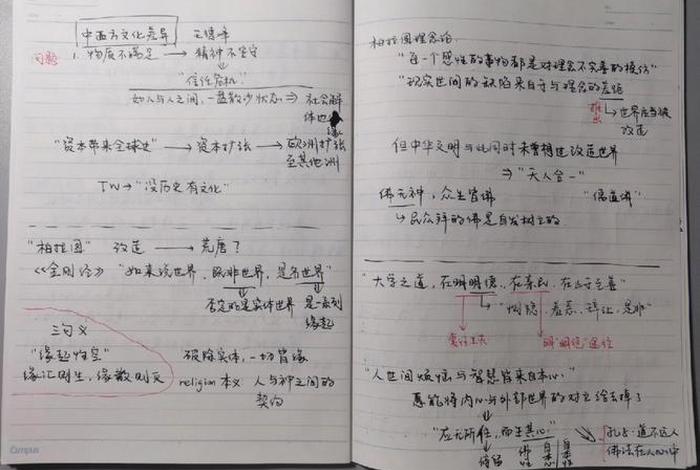 中西方文化差异 王德峰
问题 1. 物质不满足 → 精神不坚守
"信任危机"
如人与人之间,一盘散沙状态 ⇒ 社会解体边缘
"资本带来全球史" → 资本扩张 → 欧洲扩张至其他洲
TW → "没历史有文化"
"柏拉图" 改造 → 荒唐?
《金刚经》 "如来说世界,既非世界,是名世界"
否定的是实体世界 是一系列缘起
三句义
"缘起性空" 破除实体,一切皆缘
缘汇则生,缘散则灭 religion 本义 人与神之间的契约
Campus
柏拉图理念论
"每一个感性的事物都是对理念不完善的模仿"
"现实世间的缺陷来自于与理念的差距
推出 → 世界应当被改造
但中华文明与此同时未曾想过改造世界
⇒ "天人合一"
佛无神,众生皆佛 "儒道佛"
↳ 民众拜的佛是自发树立的
"大学之道,在明明德,在亲民,在止于至善"
"恻隐、羞恶、辞让、是非"
明"明德"途径
"人世间烦恼与智慧皆来自本心"
惠能将内心与外部世界的对立给去掉了
"应无所住,而生其心" 孔子:道不远人
佛法在人心中
佛性